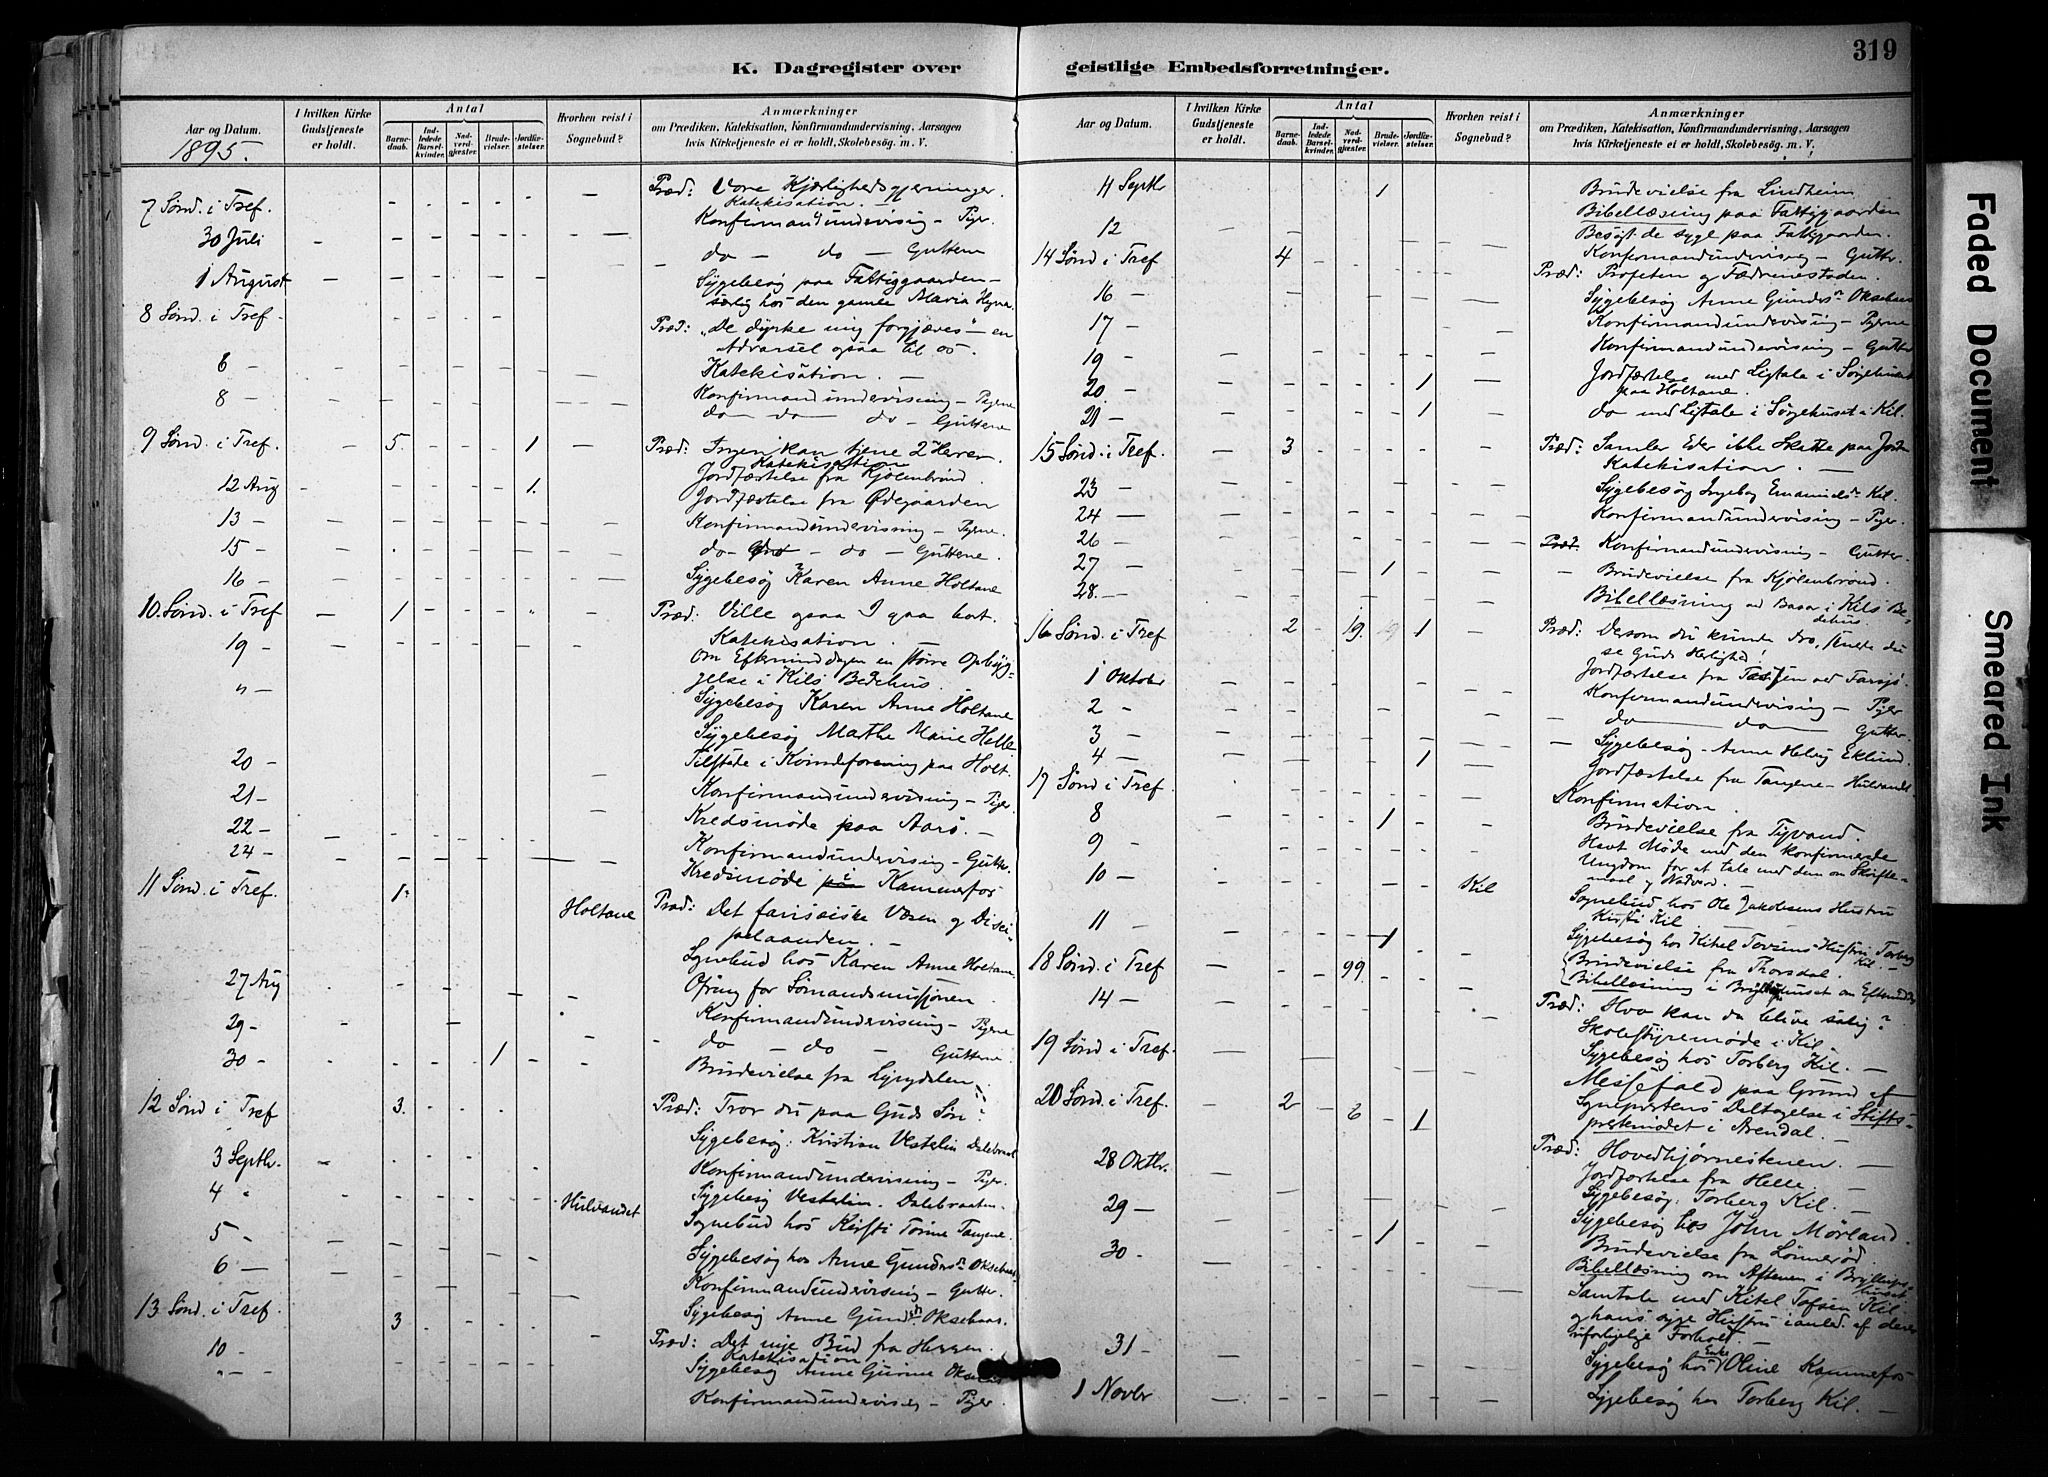 319
K. Dagregister over geistlige Embedsforretninger.
Aar og Datum.
1895.
I hvilken Kirke Gudstjeneste er holdt.
Antal
Barnedaab.
Indledede Barselkvinder.
Nadverdgjæster.
Brudevielser.
Jordfæstelser.
Hvorhen reist i Sognebud?
Anmærkninger
om Prædiken, Katekisation, Konfirmandundervisning, Aarsagen
hvis Kirketjeneste ei er holdt, Skolebesøg. m. V.
7 Sønd. i Tref. Præd: Vore Kjærlighedsgjerninger.
Katekisation. –
30 Juli Konfirmandundervisnig – Piger.
1 August do – do – Guttene
Sygebesøg paa Fattiggaarden –
særlig hos den gamle Maria
8 Sønd. i Tref. Præd: "De dyrke mig forgjæves" – en
Advarsel ogsaa til os.
Katekisation. –
6 – Konfirmandundervisning – Pigerne
8 – do – do – do – Guttene
9 Sønd. i Tref. 5. 1 Præd: Ingen kan tjene 2 Herrer.
Katekisation
Jordfæstelse fra Kjølenbrønd.
12 Aug 1. Jordfæstelse fra Ødegaarden
13 – Konfirmandundervisning – Pigerne.
15 – do – do – Guttene.
16 – Sygebesøg Karen Anne Holtane
10. Sønd. i Tref 1 Præd: Ville ogsaa I gaa bort.
Katekisation. –
19 – Om Eftermiddagen en større Opbyg-
gelse i Kils Bedehus.
" – Sygebesøg Karen Anne Holtane
Sygebesøg Marthe Marie Helle
20 – Tilstede i Kvindeforening paa Holt.
21 – Konfirmandundervisning – Piger.
22 – Kredsmøde paa Aarø. –
24 – Konfirmandundervisning – Gutter.
Kredsmøde i Kammerfos
11 Sønd. i Tref. 1 Holtane Præd: Det fariseiske Væsen og Disci-
pelaanden. –
Sognebud hos Karen Anne Holtane
27 Aug Ofring for Sømandsmissjonen.
29 – Konfirmandundervisning – Pigerne
do – do – Guttene.
30 – 1 Brudevielse fra
12 Sønd i Tref 3. Præd: Tror du paa Guds Søn?
Sygebesøg: Kristian Vestelin Dalebraat
3 Septbr. Konfirmandundervisning – Piger.
4 " Hulvandet Sygebesøg Vestelin Dalebraaten.
Sognebud hos Kirsti Torine Tangene.
5 – Sygebesøg hos Anne Gundersn Oksebaas
6 – Konfirmandundervisning – Gutter.
13 Sønd. i Tref. 3 Sygebesøg Anne Gundsn Oksebaas.
Præd: Det nye Bud fra Herren.
10 – Katekisation
" – Sygebesøg Anne
Konfirmandundervisnig – Piger.
Aar og Datum.
I hvilken Kirke Gudstjeneste er holdt.
Antal
Barnedaab.
Indledede Barselkvinder.
Nadverdgjæster.
Brudevielser.
Jordfæstelser.
Hvorhen reist i Sognebud?
Anmærkninger
om Prædiken, Katekisation, Konfirmandundervisning, Aarsagen
hvis Kirketjeneste ei er holdt, Skolebesøg. m. V.
11 Septbr 1 Brudevielse fra Lindheim
Bibellæsning paa Fattiggaarden
12 Besøgt de syge paa Fattiggaarden.
14 Sønd i Tref 4 Konfirmandundervisng – Gutter.
Præd: Profeten og Fædrenestaden.
16 – Sygebesøg Anne Gundersn Oksebaas
17 – Konfirmandundervisning – Pigerne
19 – Konfirmandundervisning – Gutter
20 – 1 Jordfæstelse med Ligtale i Sørgehuset
paa Holtane.
21 – 1 do med Ligtale i Sørgehuset i Kil.
15 Sønd. i Tref. 3 Præd: Samler Eder ikke Skatte paa Jord
Katekisation. –
23 – Sygebesøg Ingebog Emanuelsdr Kil.
24 – Konfirmandundervisning – Piger.
26 – Konfirmandundervisning – Gutter.
27 – 1 Brudevielse fra Kjølenbrønd.
28. – Bibellæsning ved Basar i Kils Be-
dehus.
16 Sønd. i Tref 2 19. 19 1 Præd: Dersom du kunde tro, skulde du
se Guds Herlighed!
1 Oktober Jordfæstelse fra ved Farsjø.
2 – Konfirmandundervisning – Piger
3 – do – do – Gutter.
4 – 1 Sygebesøg – Anne Helvig Eklund.
17 Sønd i Tref. Jordfæstelse fra Tangene – Hulvandet
Konfirmation.
8 1 Brudevielse fra Tyvand.
9 – Havt Møde med den konfirmerede
Ungdom for at tale med dem om Skrifte-
maal og Nadverd. –
10 – Kil Sognebud hos Ole Jakobsens Hustru
Kirsti Kil –
11 – 1 Sygebesøg hos Kitel Hustru Torberg
Kil. –
18 Sønd. i Tref 99. Brudevielse fra Thorsdal.
Bibellæsning i Bryllupshuset om Eftermidd
14 – Præd: Hvo kan da blive salig?
Skolestyremøde i Kil.
19 Sønd i Tref. Sygebesøg hos Torberg Kil. –
Messefald paa Grund af
20 Sønd. i Tref. 2 6 1 Sogneprestens Deltagelse i Stifts-
prestemødet i Arendal. –
Præd: Hovedhjørnestenen. –
28 Oktbr. Jordfæstelse fra Helle. –
Sygebesøg: Torberg Kil. –
29 – Sygebesøg hos John Mørland.
30 – 1 Brudevielse fra Lønnerød.
Bibellæsning om Aftenen i Bryllups-
huset
Samtale med Kitel Kil
og hans syge Hustru i anled. af deres
31 – uforligelige Forhold. –
Sygebesøg hos Enke Oline Kammerfos
1 Novbr Sygebesøg hos Torberg Kil. –
Faded Document
Smeared Ink